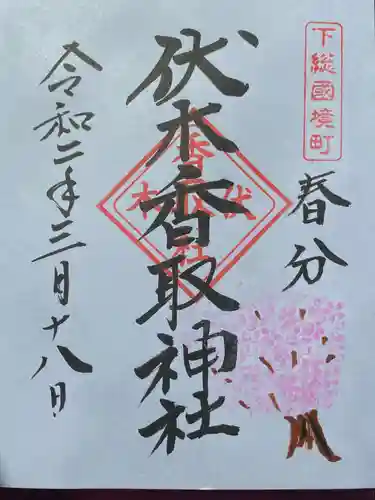 下総國境町
春分
伏木香取神社
令和二年三月十八日